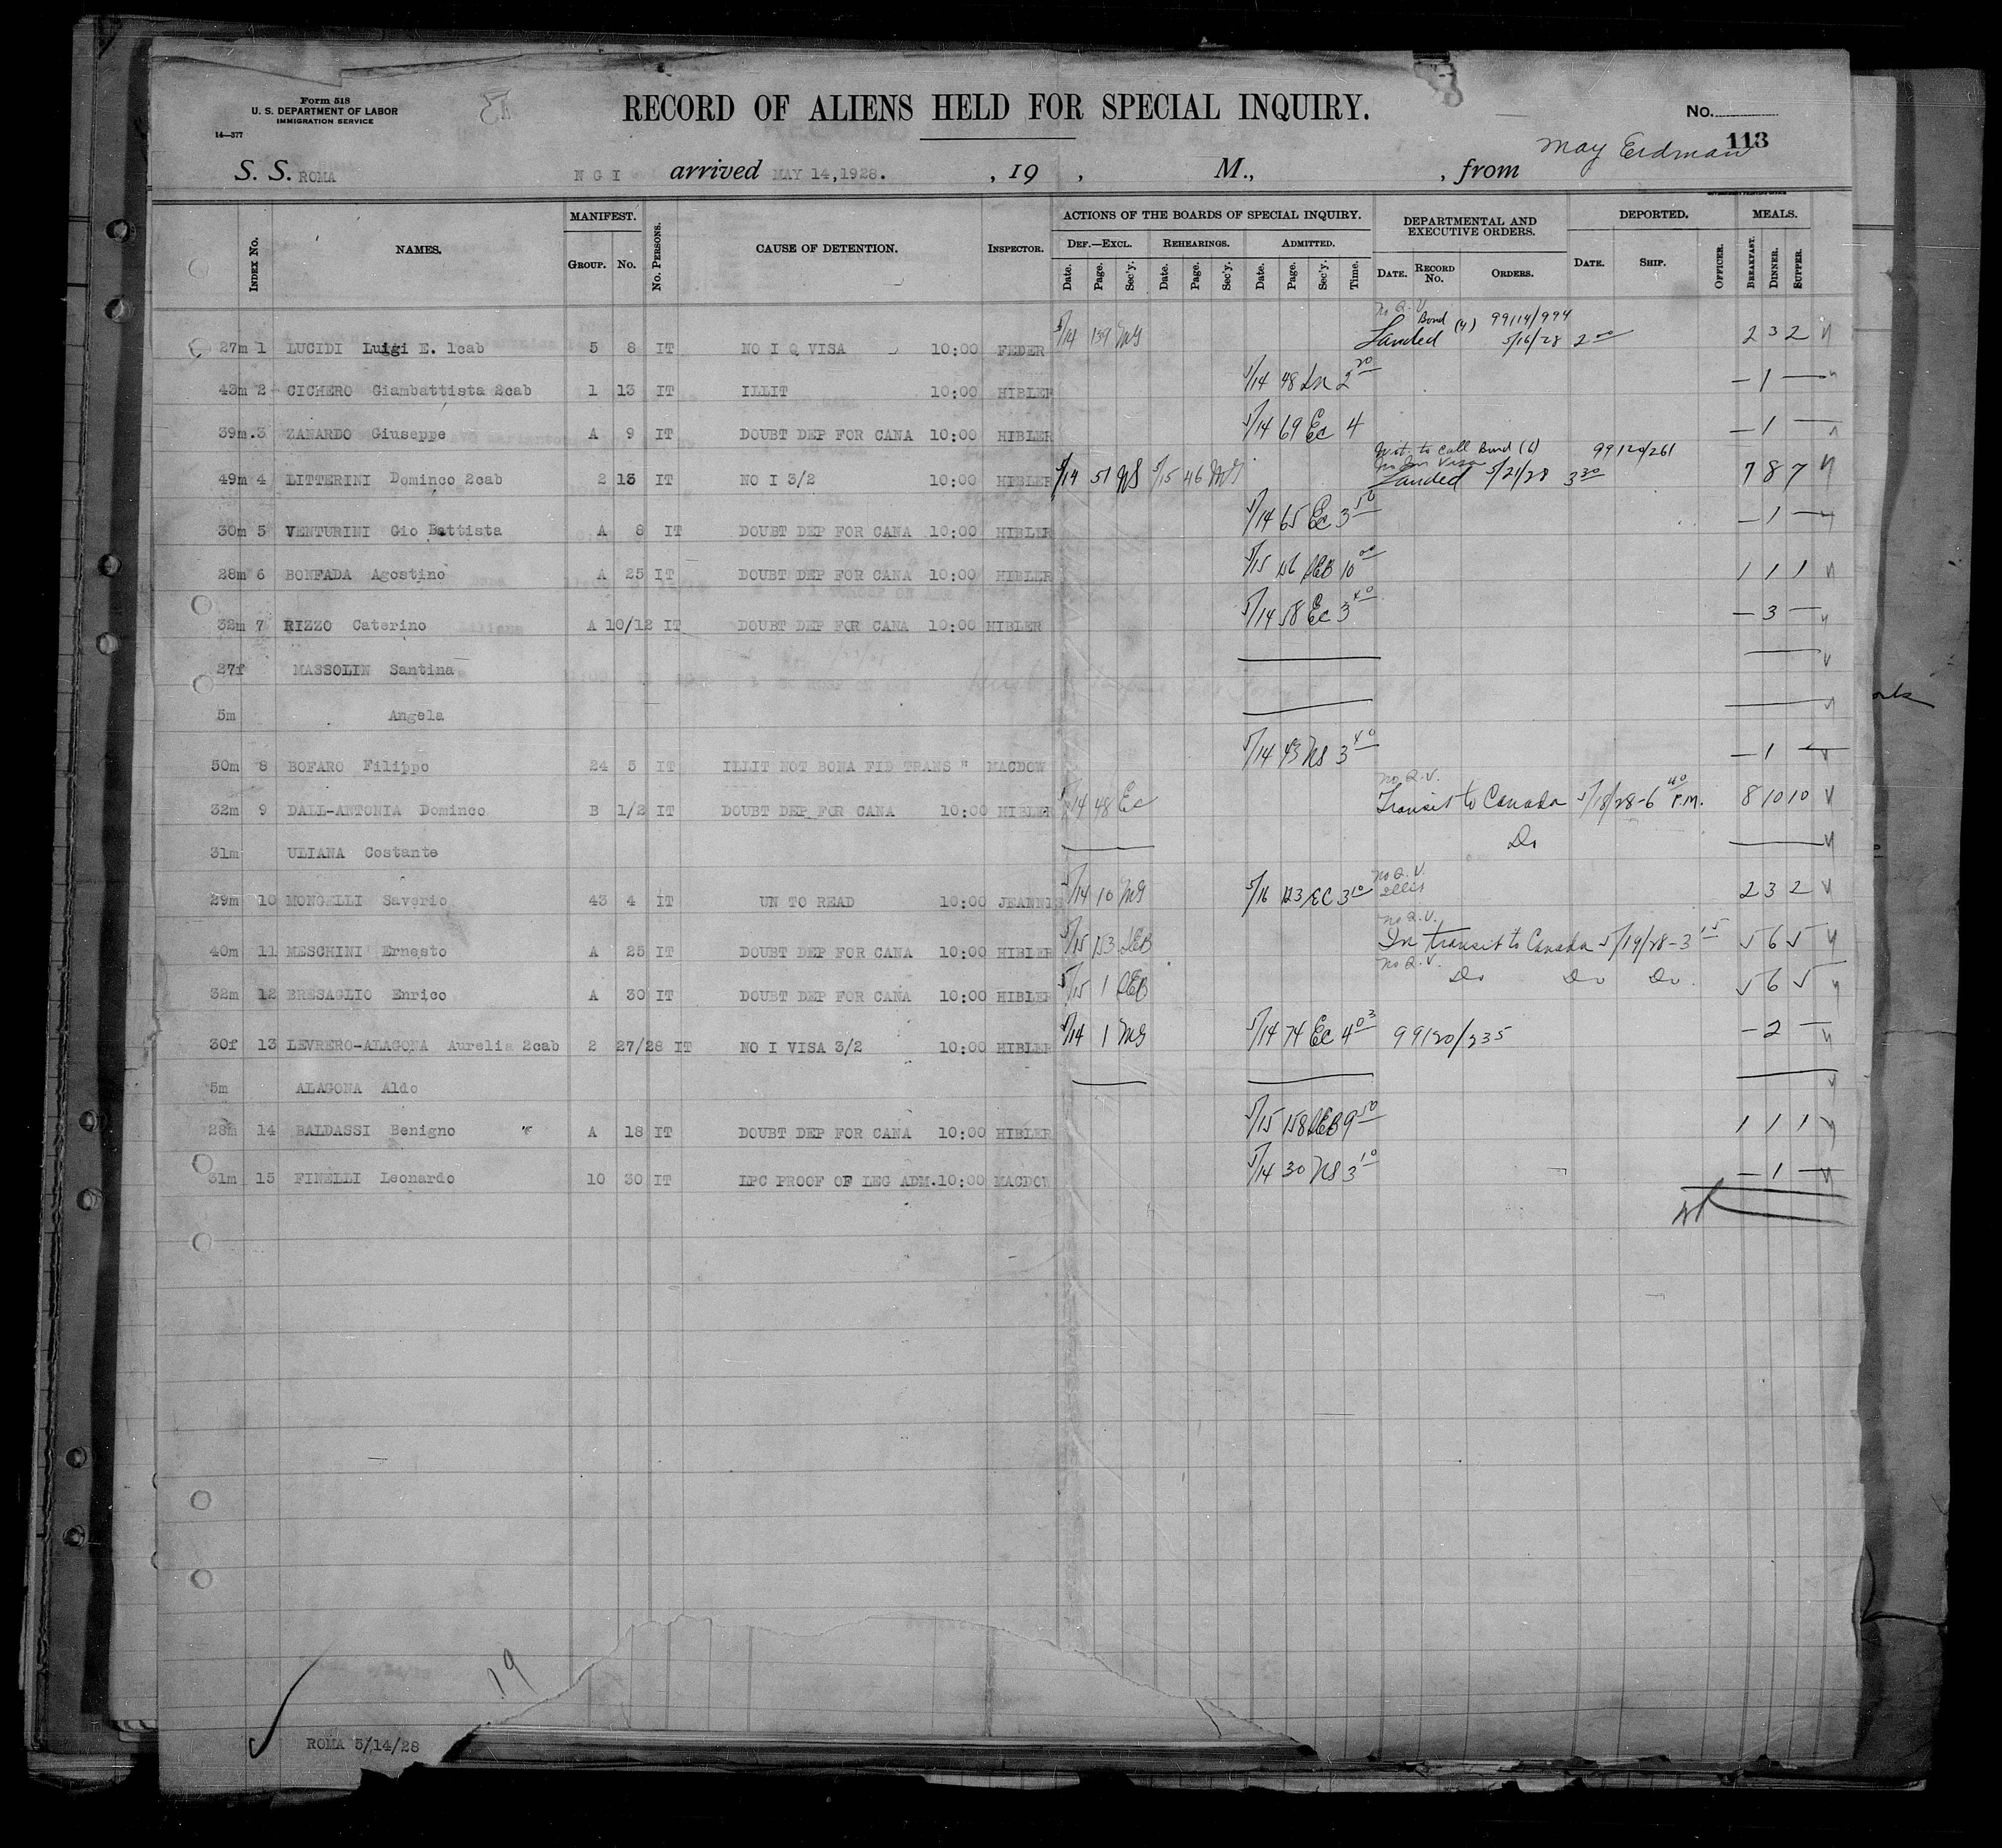 Form 518
U. S. DEPARTMENT OF LABOR
IMMIGRATION SERVICE
14—377
RECORD OF ALIENS HELD FOR SPECIAL INQUIRY.
No.
113
May Erdman
S. S. ROMA N G I arrived MAY 14,1928. , 19 , M., , from
INDEX No. NAMES. MANIFEST. GROUP. No. No. PERSONS. CAUSE OF DETENTION. INSPECTOR. ACTIONS OF THE BOARDS OF SPECIAL INQUIRY. DEF.—EXCL. Date. Page. Sec'y. REHEARINGS. Date. Page. Sec'y. ADMITTED. Date. Page. Sec'y. Time. DEPARTMENTAL AND EXECUTIVE ORDERS. DATE. RECORD No. ORDERS. DEPORTED. DATE. SHIP. OFFICER. MEALS. BREAKFAST. DINNER. SUPPER.
No Q. V. Bond (4) 99114/994
27m 1 LUCIDI Luigi E. 1cab 5 8 IT NO I Q VISA 10:00 FEDER 5/14 159 MG Landed 5/16/28 2 00 2 3 2
43m 2 CICHERO Giambattista 2cab 1 13 IT ILLIT 10:00 HIBLER 5/14 48 2 20 — 1 —
39m.3 ZANARDO Giuseppe A 9 IT DOUBT DEP FOR CANA 10:00 HIBLER 5/14 69 Ec 4 — 1 —
to call Bond (6) 99120/261
49m 4 LITTERINI Dominco 2cab 2 13 IT NO I 3/2 10:00 HIBLER 5/14 51 NS 5/15 46 MG Landed 5/21/28 3 30 7 8 7
30m 5 VENTURINI Gio Battista A 8 IT DOUBT DEP FOR CANA 10:00 HIBLER 5/14 65 Ec 3 50 — 1 —
28m 6 BONFADA Agostino A 25 IT DOUBT DEP FOR CANA 10:00 HIBLER 5/15 10 00 1 1 1
32m 7 RIZZO Caterino A 10/12 IT DOUBT DEP FOR CANA 10:00 HIBLER 5/14 58 Ec 3 40 — 3 —
27f MASSOLIN Santina
5m Angela
50m 8 BOFARO Filippo 24 5 IT ILLIT NOT BONA FID TRANS " MACDOW 5/14 43 NS 3 40 — 1 —
No Q.V.
32m 9 DALL-ANTONIA Dominco B 1/2 IT DOUBT DEP FOR CANA 10:00 HIBLER 5/14 48 Ec Transit to Canada 5/18/28-6 40 P.M. 8 10 10
31m ULIANA Costante Do
No Q.V.
29m 10 MONGELLI Saverio 43 4 IT UN TO READ 10:00 JEANNI 5/14 10 MG 5/16 123 EC 3 10 2 3 2
No Q.V.
40m 11 MESCHINI Ernesto A 25 IT DOUBT DEP FOR CANA 10:00 HIBLER 5/15 153 DEB In transit to Canada 5/19/28-3 15 5 6 5
No Q.V.
32m 12 BRESAGLIO Enrico A 30 IT DOUBT DEP FOR CANA 10:00 HIBLER 5/15 1 DEB Do Do Do 5 6 5
30f 13 LEVRERO-ALAGONA Aurelia 2cab 2 27/28 IT NO I VISA 3/2 10:00 HIBLER 5/14 1 MG 5/14 74 Ec 4 03 99120/235 — 2 —
5m ALAGONA Aldo
28m 14 BALDASSI Benigno A 18 IT DOUBT DEP FOR CANA 10:00 HIBLER 5/15 158 DEB 9 50 1 1 1
31m 15 FINELLI Leonardo 10 30 IT LPC PROOF OF LEG ADM.10:00 MACDOW 5/14 30 NS 3 10 — 1 —
19
ROMA 5/14/28